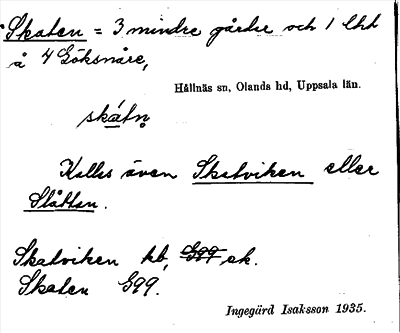 Skaten = 3 mindre gårdar och 1 lht
å 4 Göksnåre,
Hållnäs sn, Olands hd, Uppsala län.
skát̥n̥
Kallas även Skatviken eller
Slåtten.
Skatviken kb, G99 ek.
Skaten G99.
Ingegärd Isaksson 1935.